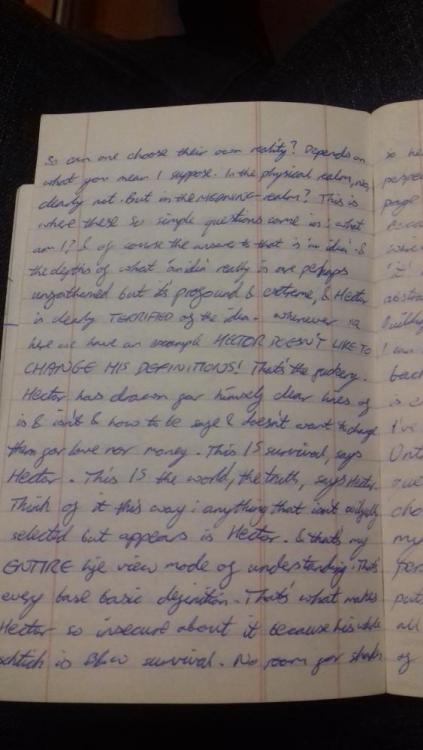 So can one choose their own reality? Depends on
what you mean I suppose. In the physical realm, no,
clearly not. But in the MEANING-realm? This is
where these so simple questions come in: what
am I? & of course the answer to that is 'an idea' &
the depths of what 'an idea' really is are perhaps
unfathomed but its profound & extreme, & Hector
is clearly TERRIFIED of the idea. Whenever
here we have an example HECTOR DOESN'T LIKE TO
CHANGE HIS DEFINITIONS! That's the fuckery.
Hector has drawn for himself clear lines of
is & isn't & how to be safe & doesn't want to change
them for love nor money. This IS survival, says
Hector. This IS the world, the truth, says Hector.
Think of it this way: anything that isn't
selected but appears is Hector. & that's my
ENTIRE life view mode of understanding. That's
every base basic definition. That's what makes
Hector so insecure about it because his whole
schtick is B&W survival. No room for shades
so he
perspe
page
abstra
build
I can
back
is c
I've
Onto
cho
my
Pers
put
all
of